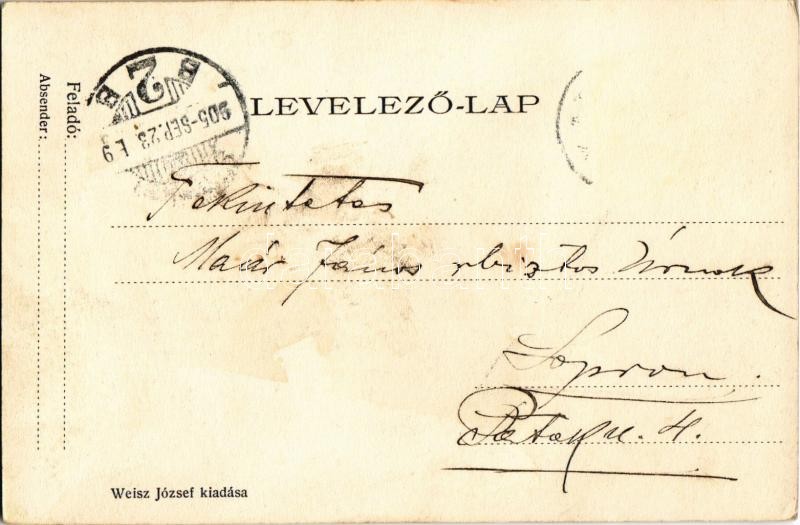 LEVELEZŐ-LAP
Feladó:
Absender:
905-SEP.23. É9
2
Tekintetes
Maár János rbiztos Úrnak
Sopron,
Patak u. 4.
Weisz József kiadása